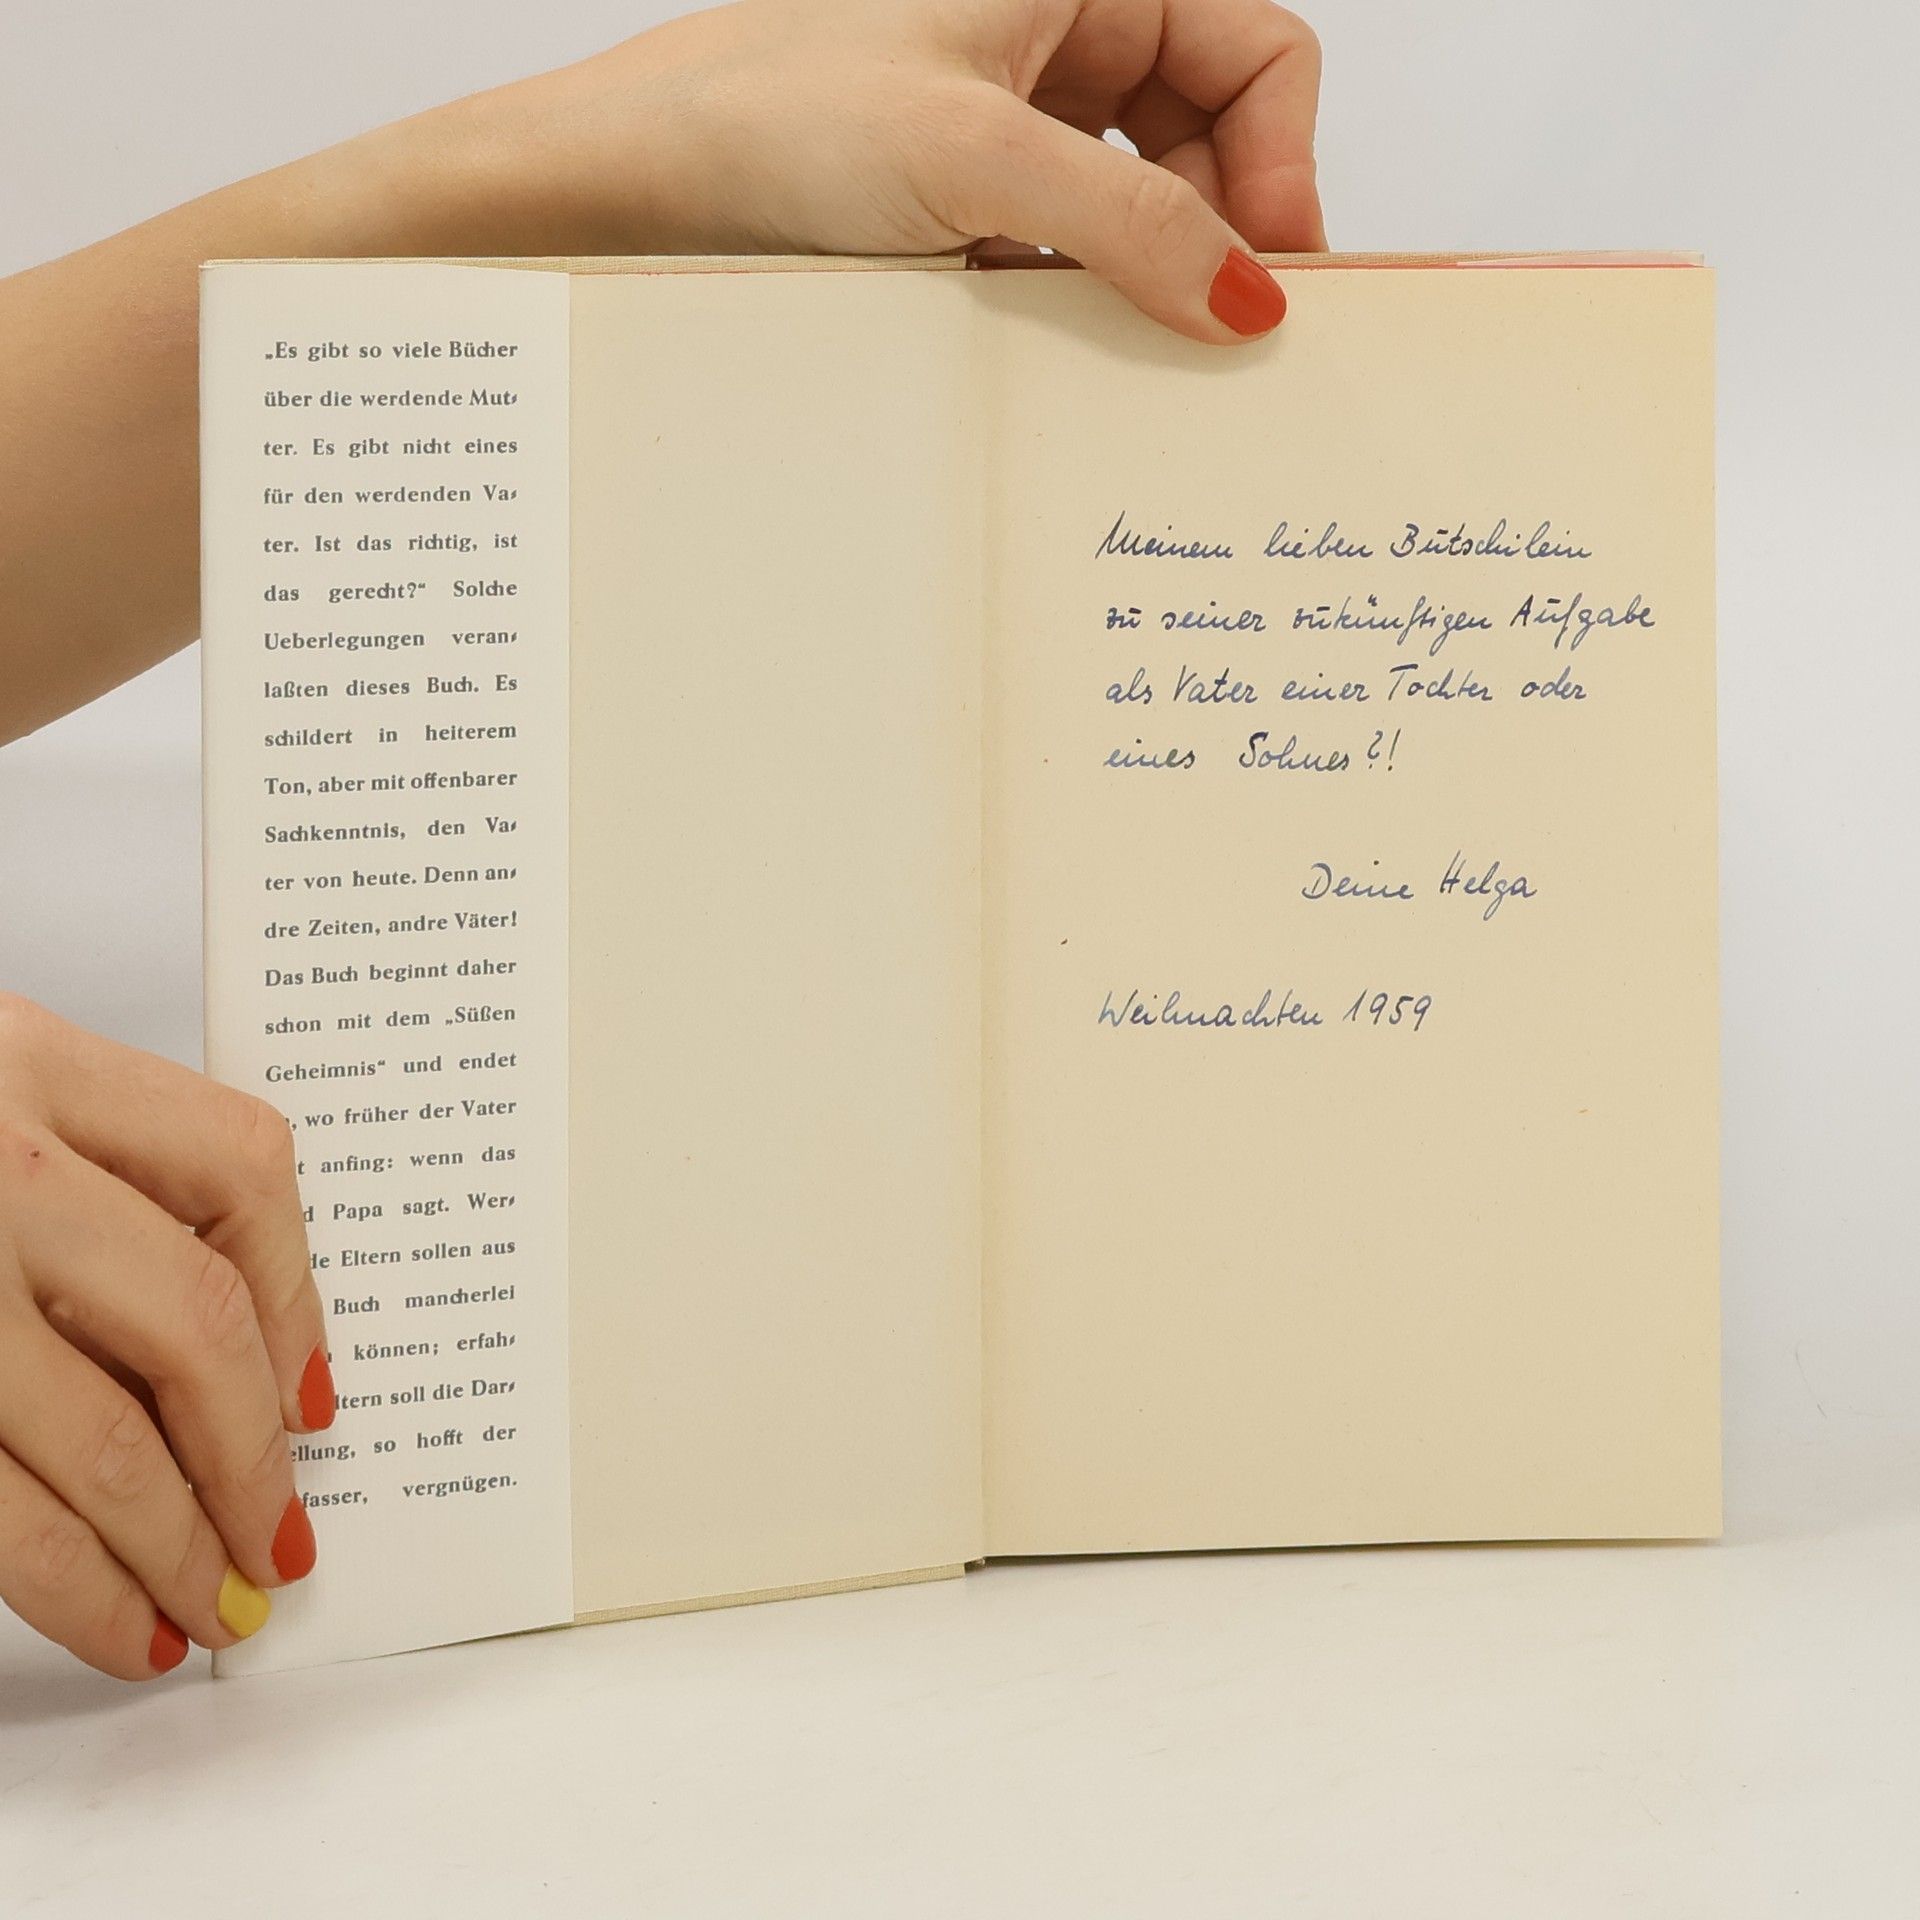 „Es gibt so viele Bücher
über die werdende Mut-
ter. Es gibt nicht eines
für den werdenden Va-
ter. Ist das richtig, ist
das gerecht?“ Solche
Ueberlegungen veran-
laßten dieses Buch. Es
schildert in heiterem
Ton, aber mit offenbarer
Sachkenntnis, den Va-
ter von heute. Denn an-
dre Zeiten, andre Väter!
Das Buch beginnt daher
schon mit dem „Süßen
Geheimnis“ und endet
, wo früher der Vater
t anfing: wenn das
d Papa sagt. Wer-
de Eltern sollen aus
Buch mancherlei
können; erfah-
ltern soll die Dar-
ellung, so hofft der
fasser, vergnügen.
Meinem lieben Butschilein
zu seiner zukünftigen Aufgabe
als Vater einer Tochter oder
eines Sohnes?!
Deine Helga
Weihnachten 1959